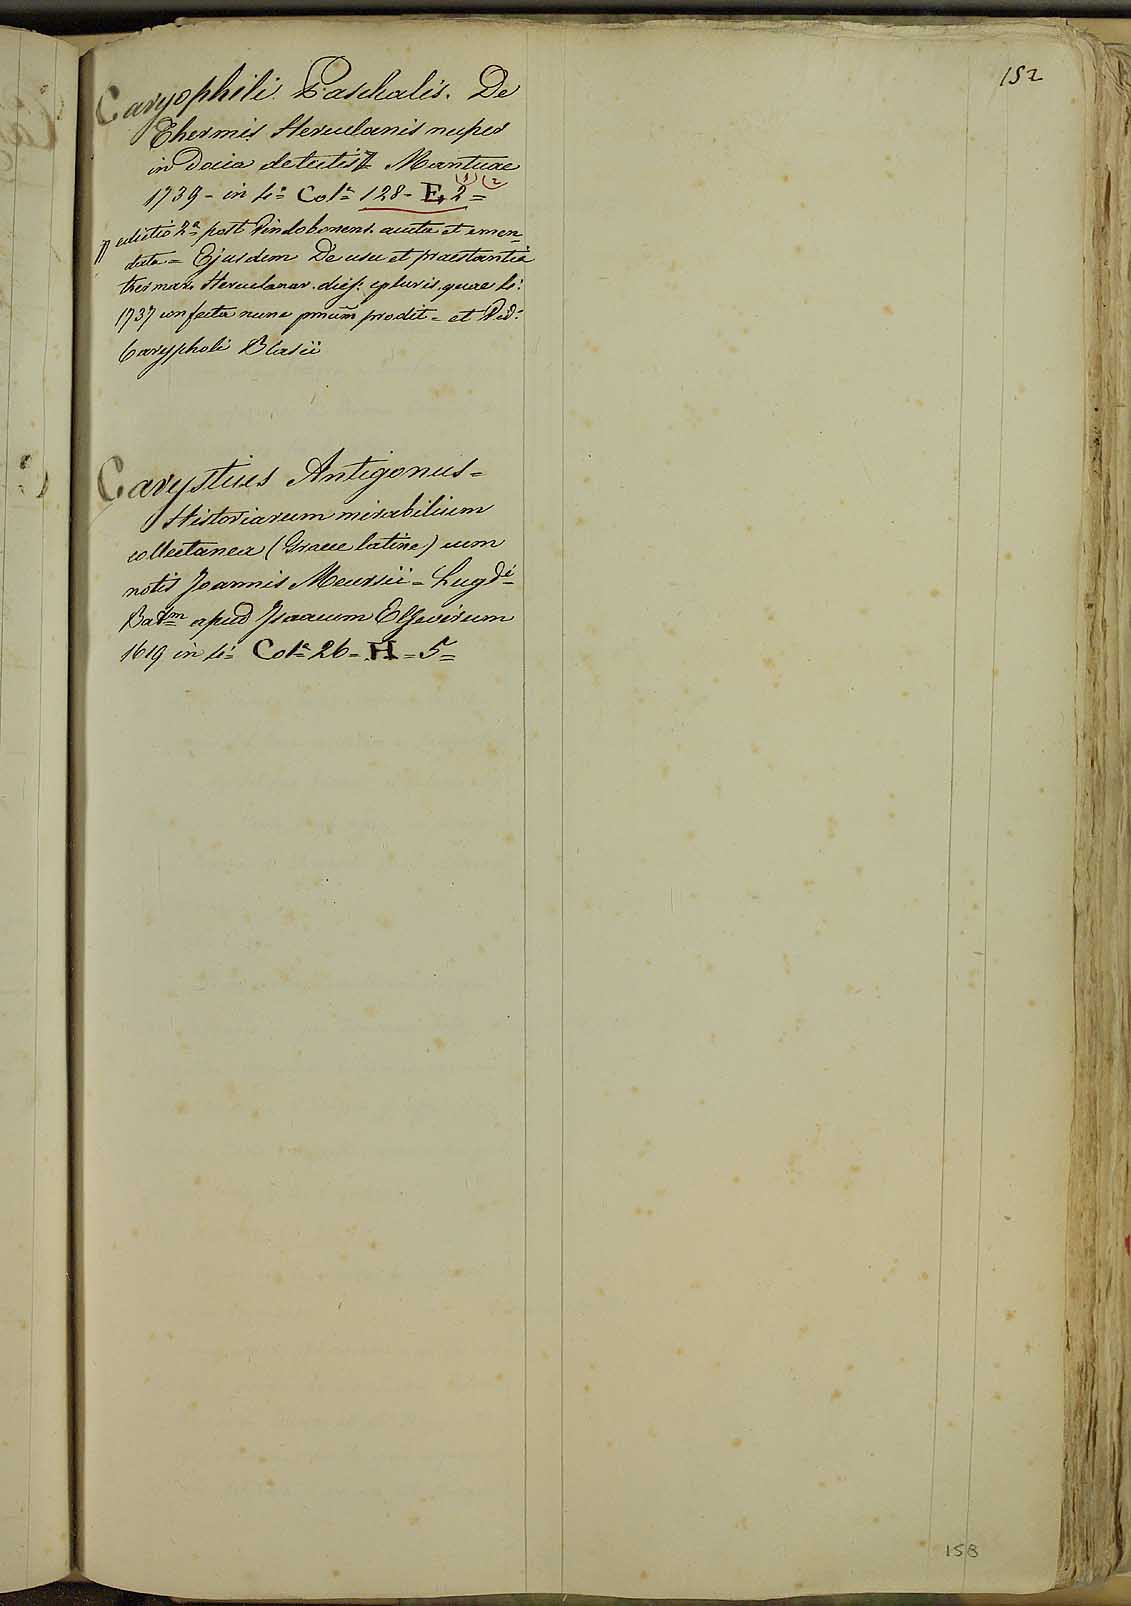 152
Caryophili. Paschalis. De
Thermis Herculanis nuper
in Dacia detectis # Mantuae
1739 - in 4.° Col.ª 128 - E, 2 =
(1) (2)
# editio 2.ª post Vindobonens. aucta et emen-
data = Ejusdem De usu et praestantia
thermar. Herculanar. diss: epluris. quae li:
1737 confecta nunc pmũm prodit = et Vid:
Carypholi Blasii
Carystius Antigonus =
Historiarum mirabilium
collectanea (Graece latine) cum
notis Joannis Meursii = Lugdi
Batm apud Isaacum Elzevirum
1619 in 4.° Col.ª 26 = H = 5 =
158